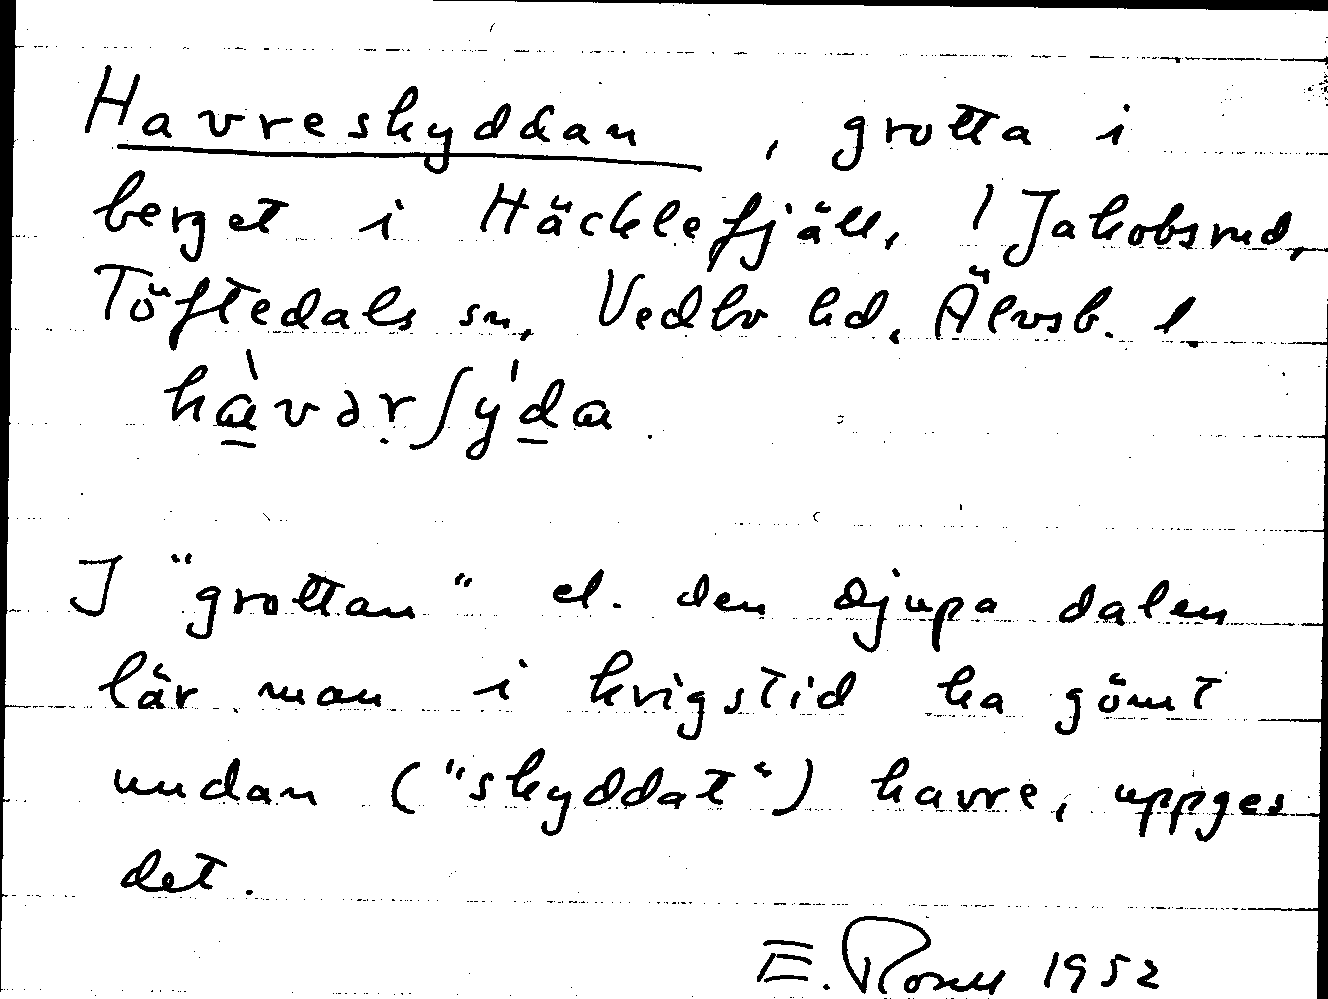 Havreskyddan, grotta i
berget i Häcklefjäll, 1 Jakobsrud,
Töftedals sn, Vedbo hd, Älvsb. l.
hàvəṛʃýda.
I "grottan" el. den djupa dalen
lär man i krigstid ha gömt
undan ("skyddat") havre, uppges
det.
E. Rosell 1952